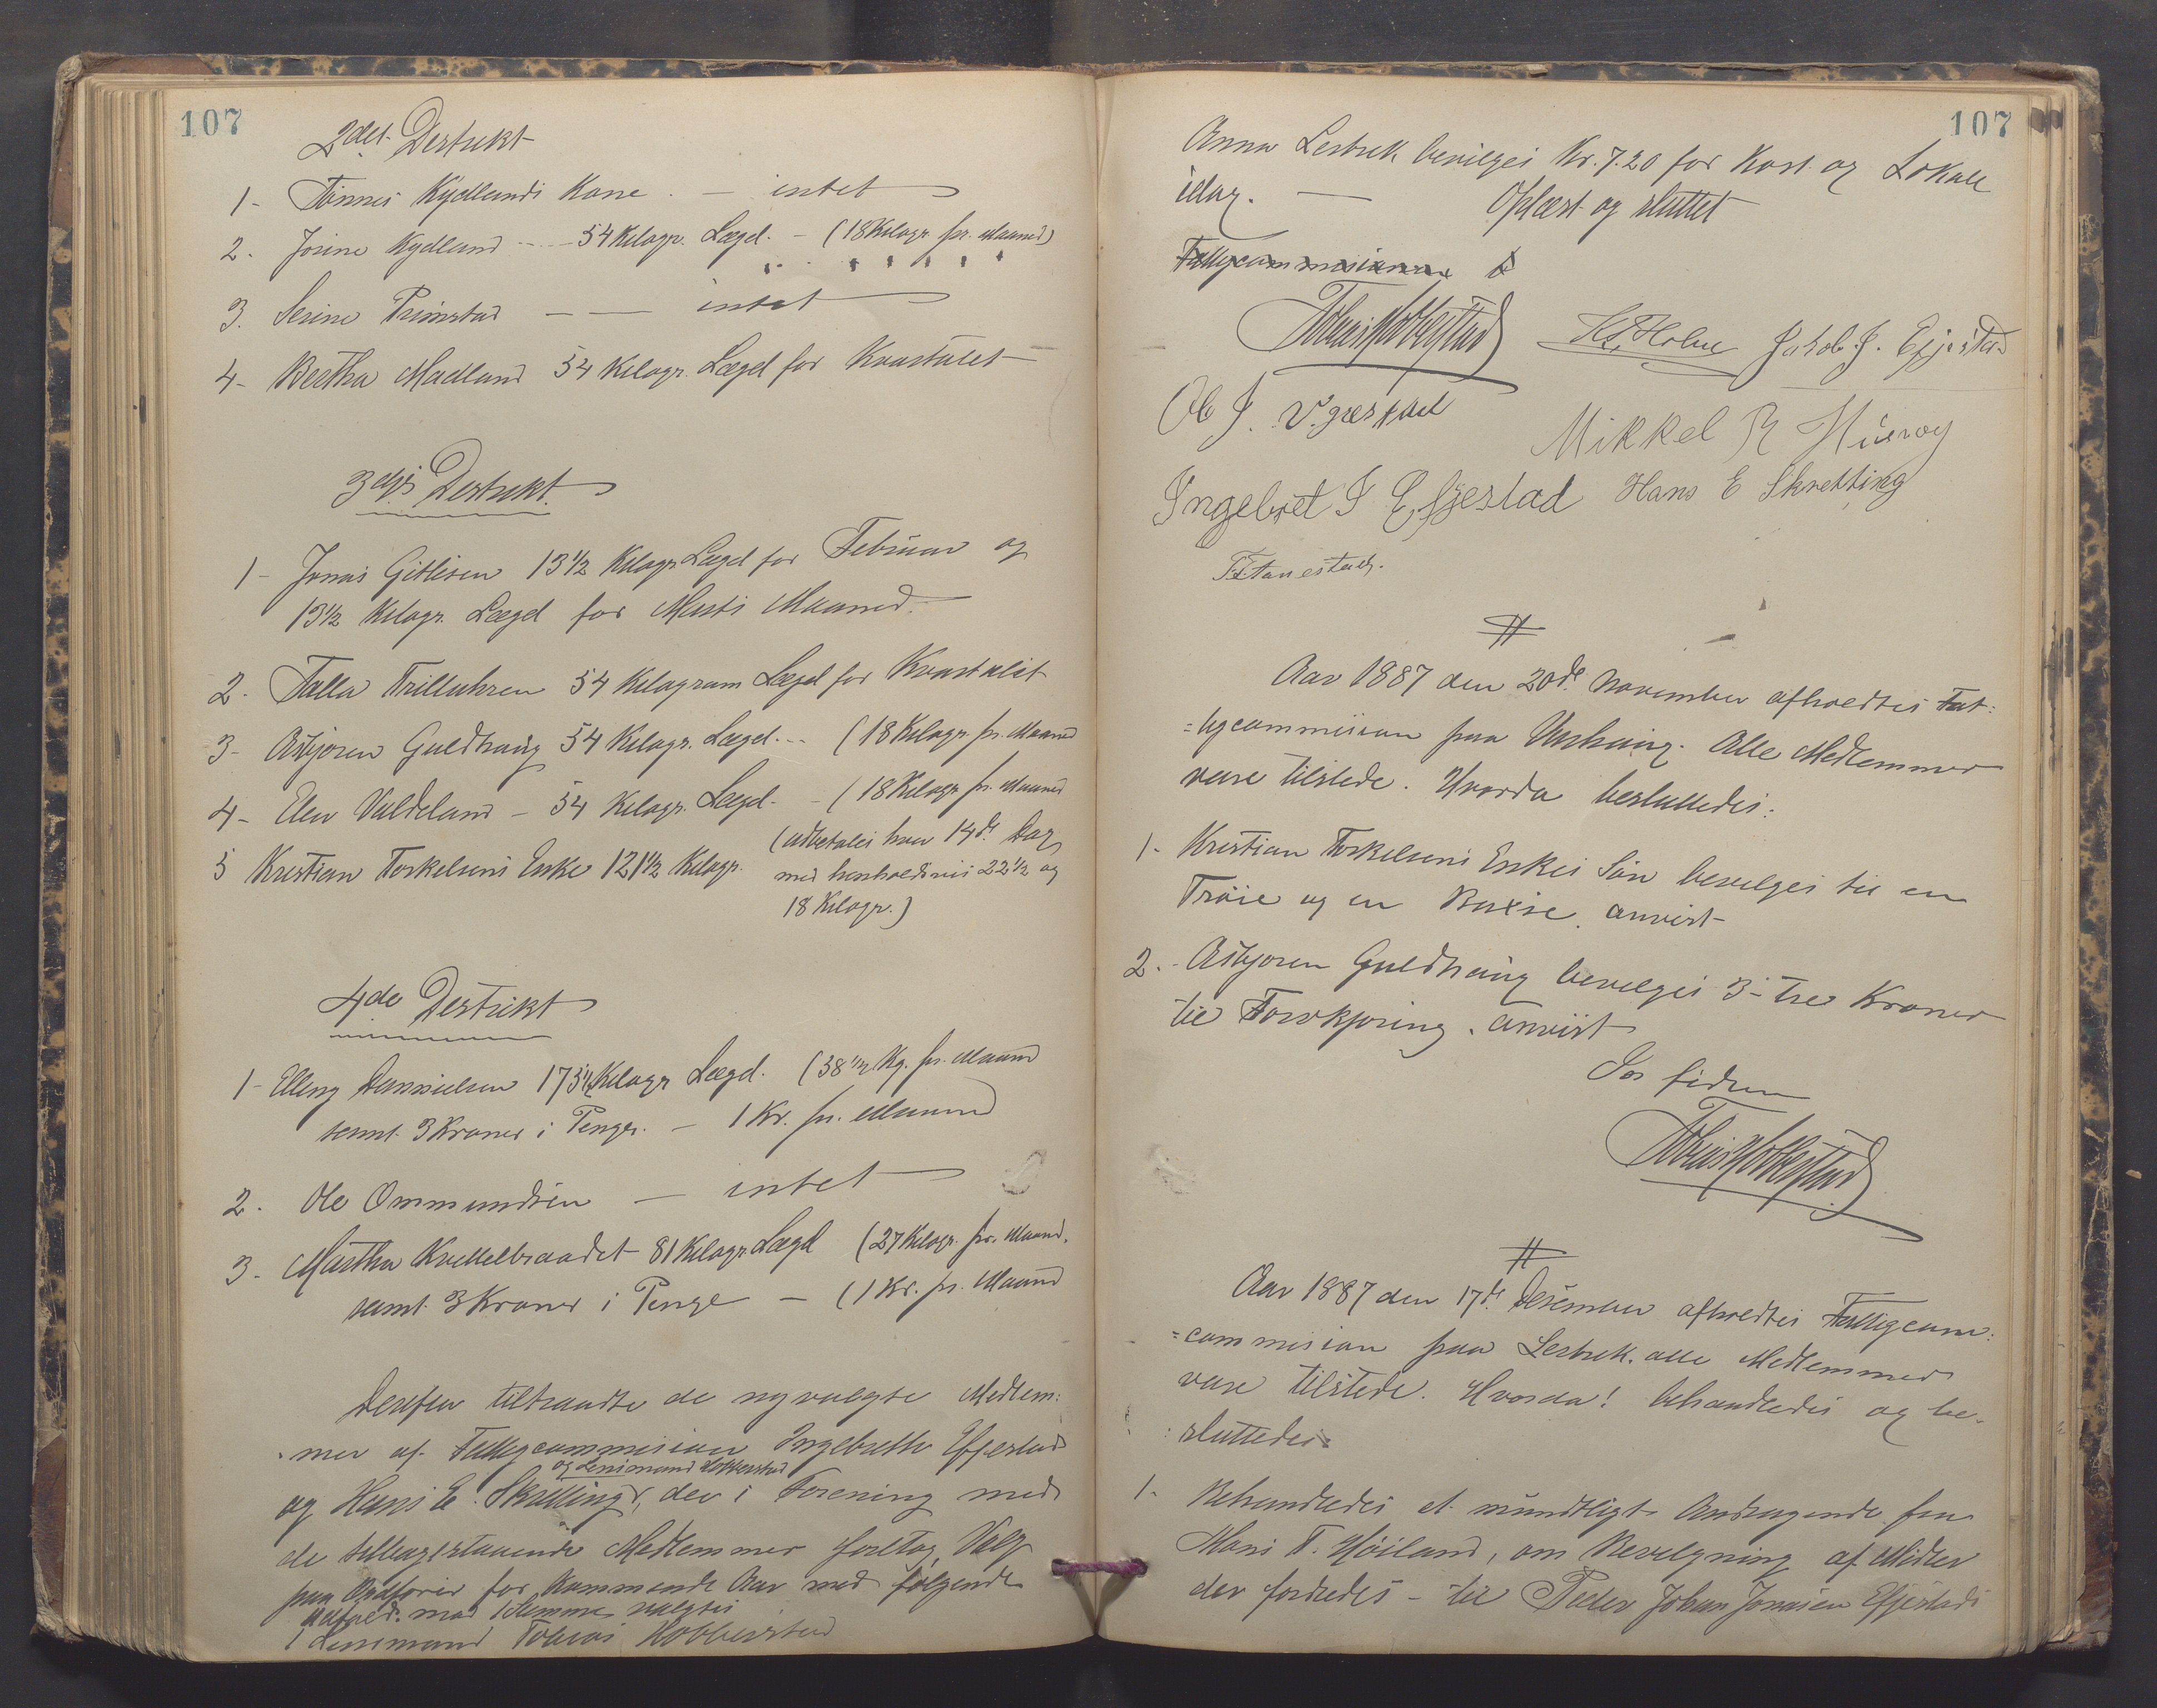 107
2det Destrikt
1- Tönnes Kydlands Kone. — intet
2. Josine Kydland - - - 54 Kilogr. Lægd. — (18 Kilogr. pr. Maaned)
3. Serine Primstad — — intet
4- Bertha Madland 54 Kilogr. Lægd for Kvartalet
3dje Destrikt
1- Jonas Gitlesen 13 1/2 Kilogr Lægd for Februar og
13 1/2 Kilogr. Lægd for Marts Maaned.
2. Talla Trilluhren 54 Kilogram Lægd for Kvartalet
3- Asbjoren Guldhaug 54 Kilogr. Lægd. - - (18 Kilogr. pr. Maaned
4- Elen Valdeland — 54 Kilogr. Lægd. — (18 Kilogr pr. Maaned
5 Kristian Torkelsens Enke 121 1/2 Kilogr. (udbetales hver 14de Dag
med henholdsvis 22 1/2 og
18 Kilogr.)
4de Destrikt
1- Elling Danielsen Kilogr Lægd. (38 1/2 Kg. pr. Maaned
samt 3 Kroner i Penger. — 1 Kr. pr. Maaned
2. Ole Ommundsen — intet
3. Martha Kvellebraadet 81 Kilogr. Lægd (27 Kilogr. pr. Maaned.
samt 3 Kroner i Penge — (1 Kr. pr. Maaned
Derefter tiltraadte de nyvalgte Medlem:
mer af Fattigcommision Ingebreth Efjestad
og Lensmand Hobberstad
og Hans E. Skretting, der i Forening med
de tilbagestaaende Medlemmer foretog Valg
paa Ordfører for kommende Aar med følgende
Udfald. med 1 Stemme valgtes
Lensmand Tobias Hobberstad
107
Anna Lestrek bevilges Kr. 7.20 for Kost og Lokale
idag. — Oplæst og sluttet
Fattigcommisionen
Tobias Hobberstad Holm Jakob J. Efjestad
Ole J. Vgrestad
Mikkel R Husvog
Ingebret I Efjestad Hans E Skretting
T. Tanestad.
#
Aar 1887 den 20de November afholdtes Fat:
=tigcommision paa Unhaug. Alle Medlemmer
vare tilstede. Hvorda besluttedes:
1- Kristian Torkelsens Enkes Sön bevilges til en
Tröie og en Buxse. anvist
2.- Asbjoren Guldhaug bevilges 3- tre Kroner
til Torvkjøring. anvist
Tobias Hobberstad
#
Aar 1887 den 17de Desember afholdtes Fattigcom:
=commision paa Lestrek. alle Medlemmer
vare tilstede. Hvorda! behandledes og be-
:sluttedes
1- Behandledes et mundtligt Andragende fra
Mons T. Höiland, om Bevilgning af Midler
der fordredes — til Peder Johan Jonasen Efjestads